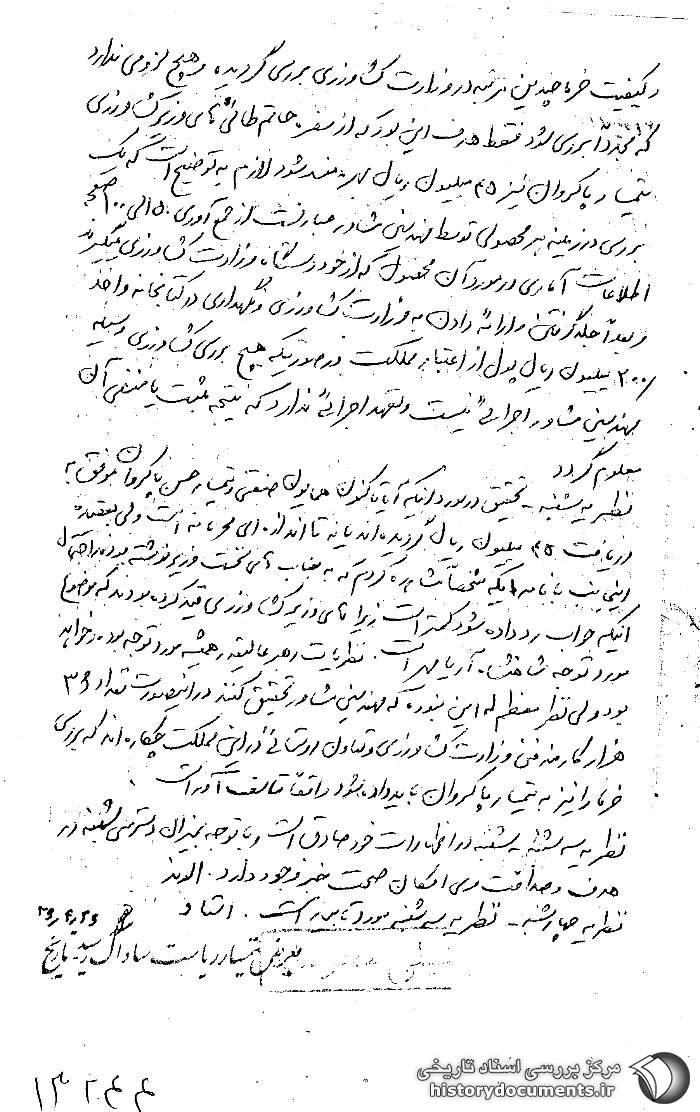 و کیفیت خرما چندین مرتبه در وزارت کشاورزی بررسی گردیده و هیچ لزومی ندارد
که مجدداً بررسی شود فقط هدف این بود که از سفره حاتم طائی آقای وزیر کشاورزی
تیمسار پاکروان نیز ۴۵ میلیون ریال بهره‌مند شود لازم به توضیح است که یک
بررسی در زمینه هر محصولی توسط مهندسین مشاور عبارتست از جمع آوری ۵۰ الی ۱۰۰ صفحه
اطلاعات آماری در مورد آن محصول که از خود دستگاه وزارت کشاورزی میگیرند
و بعداً جلد گرفتن و ارائه دادن به وزارت کشاورزی و نگهداری در کتابخانه و اخذ
۲۰۰ میلیون ریال پول از اعتبار مملکت در صورتیکه هیچ بررسی کشاورزی وسیله
مهندسین مشاور اجرائی نیست و تعهد اجرائی ندارد که نتیجه مثبت یا منفی آن
معلوم گردد
نظریه یکشنبه - تحقیق در مورد اینکه آیا تاکنون همایون صنعتی و تیمسار حسن پاکروان موفق به
دریافت ۴۵ میلیون ریال گردیده‌اند یا نه تا اندازه‌ای محرمانه است ولی بعقیده
اینجانب با نامه‌ایکه شخصاً مشاهده کردم که به جناب آقای نخست وزیر نوشته بودند احتمال
اینکه جواب رد داده شود کمتر است زیرا آقای وزیر کشاورزی قید کرده بودند که موضوع
مورد توجه شاهنشاه آریامهر است. نظریات رهبر عالیقدر همیشه مورد توجه بوده و خواهد
بود ولی نظر معظم له این نبوده که مهندسین مشاور تحقیق کنند در اینصورت تعداد ۳۶
هزار کارمند فنی وزارت کشاورزی و تعاون روستائی در این مملکت چکاره‌اند که بررسی
خرما را نیز به تیمسار پاکروان باید داده شود واقعاً تاسف‌آور است
نظریه سه شنبه - شنبه در اظهارات خود صادق است و با توجه بمیزان دسترسی شنبه در
هدف و صداقت وی امکان صحت خبر وجود دارد. الوند
نظریه چهارشنبه - نظریه سه شنبه مورد تایید است. استاد
بعرض تیمسار ریاست ساواک رسید تاریخ
۱۳۲۴۴
مرکز بررسی اسناد تاریخی
historydocuments.ir